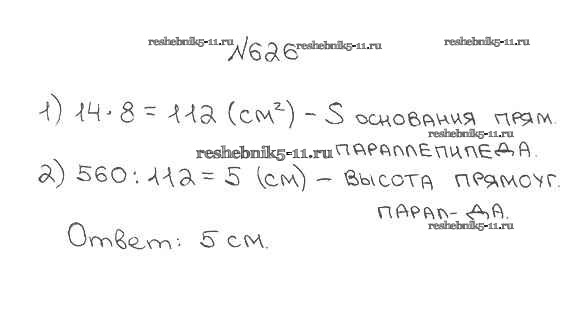 reshebnik5-11.ru reshebnik5-11.ru reshebnik5-11.ru
№626
1) 14·8=112 (см²) – S основания прям.
reshebnik5-11.ru
reshebnik5-11.ru параллепипеда.
2) 560:112=5 (см) – высота прямоуг.
парал-да.
reshebnik5-11.ru
Ответ: 5 см.